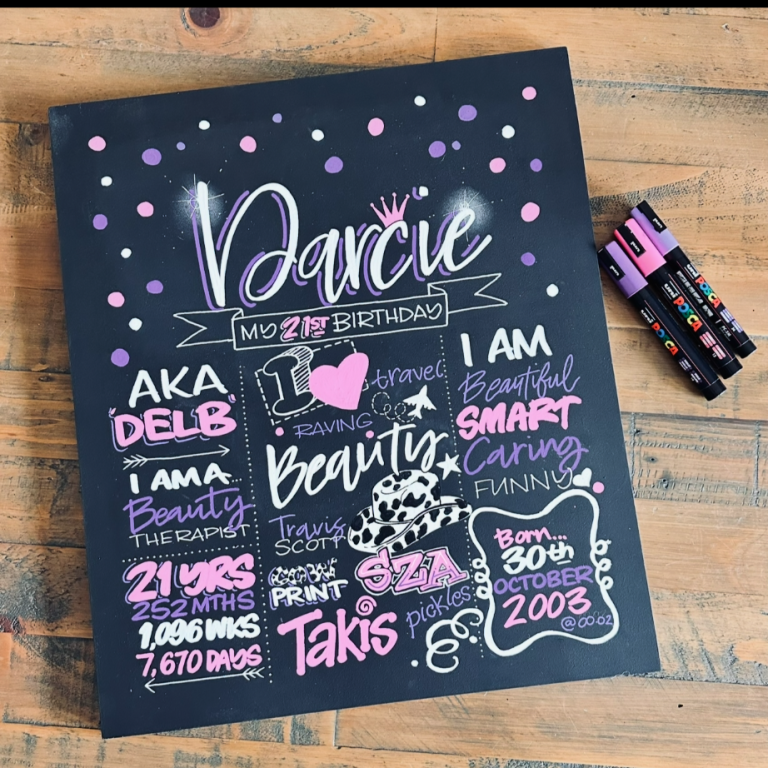 Darcie
MY 21ST BIRTHDAY
AKA
"DELB"
I AM A...
Beauty
THERAPIST
21 YRS
252 MTHS
1,096 WKS
7,670 DAYS
I
travel
RAVING
Beauty
Travis
SCOTT
COW
PRINT
SZA
Takis
pickles
I AM
Beautiful
SMART
Caring
FUNNY
Born...
30th
OCTOBER
2003
@00:02
POSCA
POSCA
POSCA